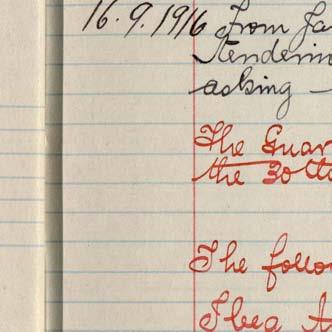 16.9.1916 From Ja
Tenderin
asking
The Guar
the 30th
The follow
I beg